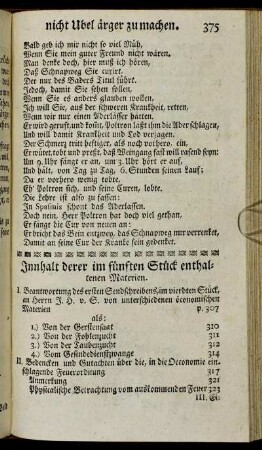 nicht Übel ärger zu machen. 375
Bald geb ich mir nicht so viel Müh,
Wenn Sie mein guter Freund nicht wären.
Man denke doch, hier muß ich hören,
Daß Schnapweg Sie curirt.
Der nur des Baders Titul führt.
Jedoch, damit Sie sehen sollen,
Wenn Sie es anders glauben wollen.
Ich will Sie, aus der schweren Krankheit, retten,
Wenn wir nur einen Aderlässer hätten.
Er word geruft, und komt, Poltron läßt ihm die Ader schlagen,
Und will damit Krankheit und Tod verjagen.
Der Schmerz tritt heftiger, als noch vorhero, ein.
Er wütet, tobt und preßt, daß Weingang fast will rasend seyn:
Um 9. Uhr fängt er an, um 3. Uhr hört er auf,
Und hält, von Tag zu Tag, 6. Stunden seinen Lauf;
Da er vorhero wenig tobte.
Eh' Poltron sich, und seine Curen, lobte.
Die Lehre ist also zu fassen:
In Spasmis schont das Aderlassen.
Doch nein, Herr Poltron hat doch viel gethan,
Er fängt die Cur von neuen an:
Er bricht das Bein entzwey, das Schnapweg nur verrenket,
Damit an seine Cur der Kranke fein gedenket.
Innhalt derer im fünften Stück enthal-
tenen Materien.
I. Beantwortung des ersten Sendschreibens, im vierdten Stück,
an Herrn J. H. v. S. von unterschiedenen öconomischen
Materien p. 307
als:
1.) Von der Gerstensaat 310
2.) Von der Fohlenzucht 311
3.) Von der Taubenzucht 312
4.) Vom Gesindedienstzwange 314
II. Bedencken und Gutachten über die, in die Oeconomie ein-
schlagende Feuerordnung 317
Anmerkung 321
Physicalische Betrachtung vom auskommenden Feuer 323
III. Ei-